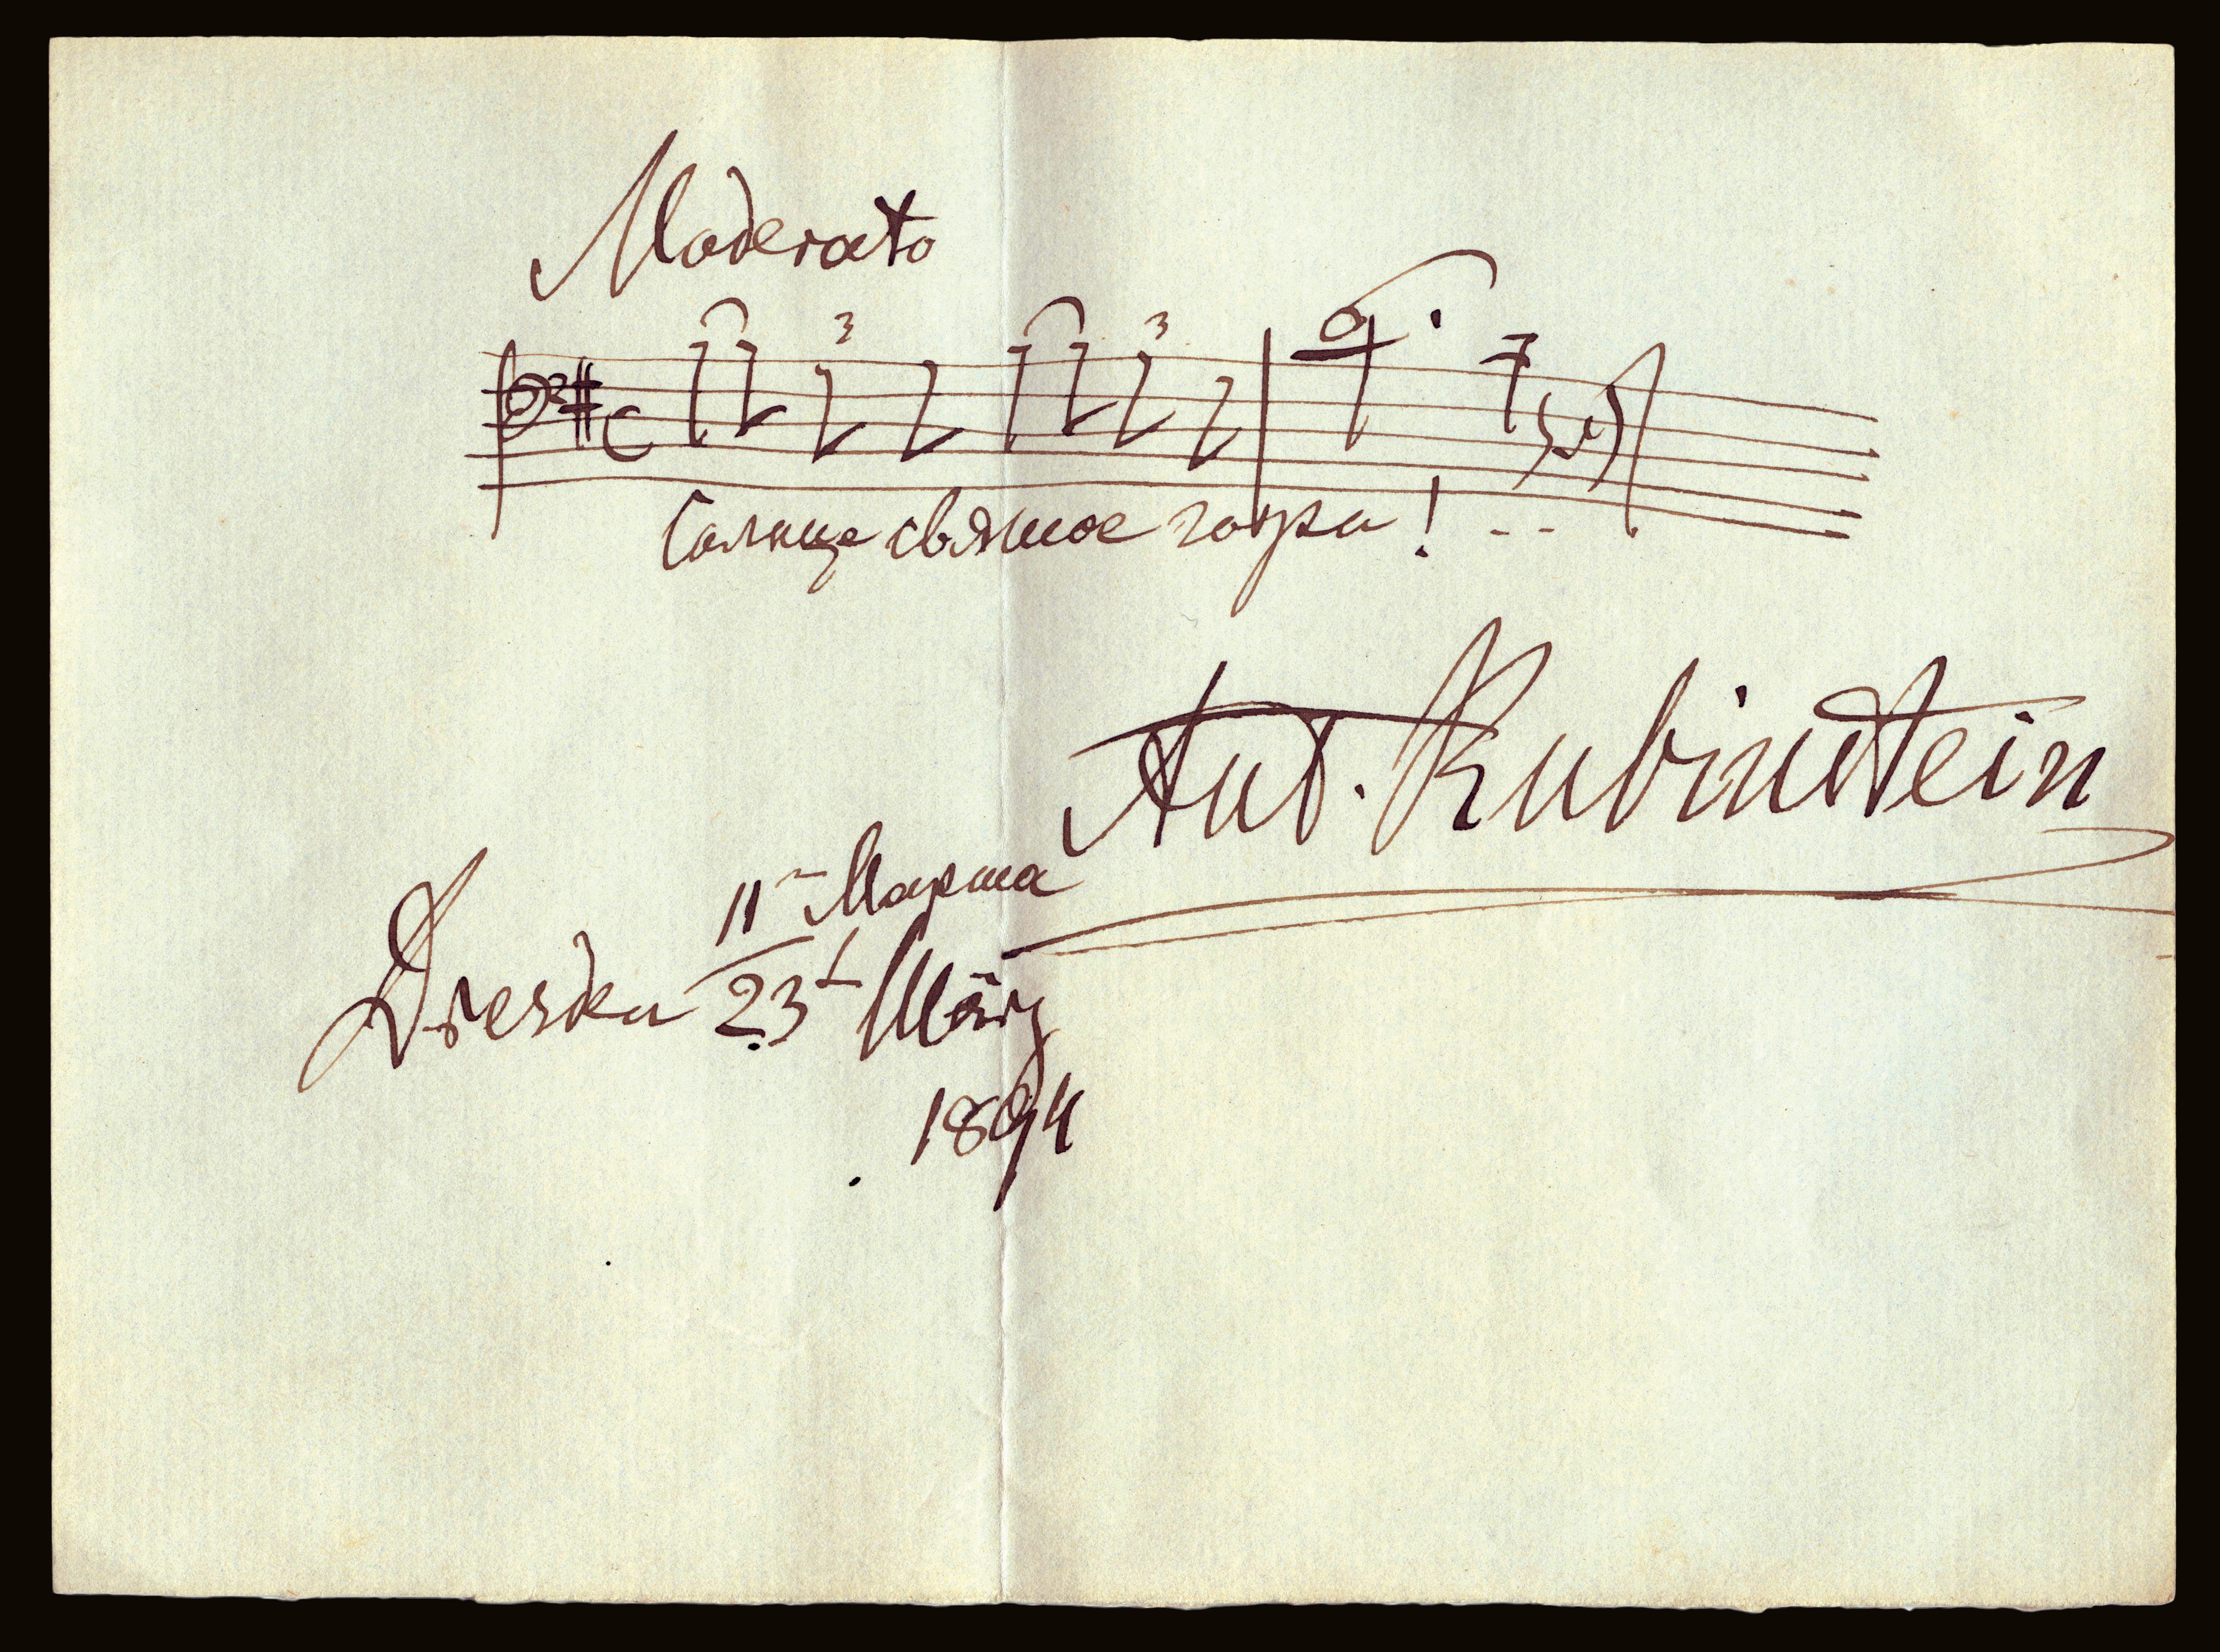 Moderato
3 3
Солнце святое гори! . .
Ant. Rubinstein
11 Марта
Dresden 23t März
1894